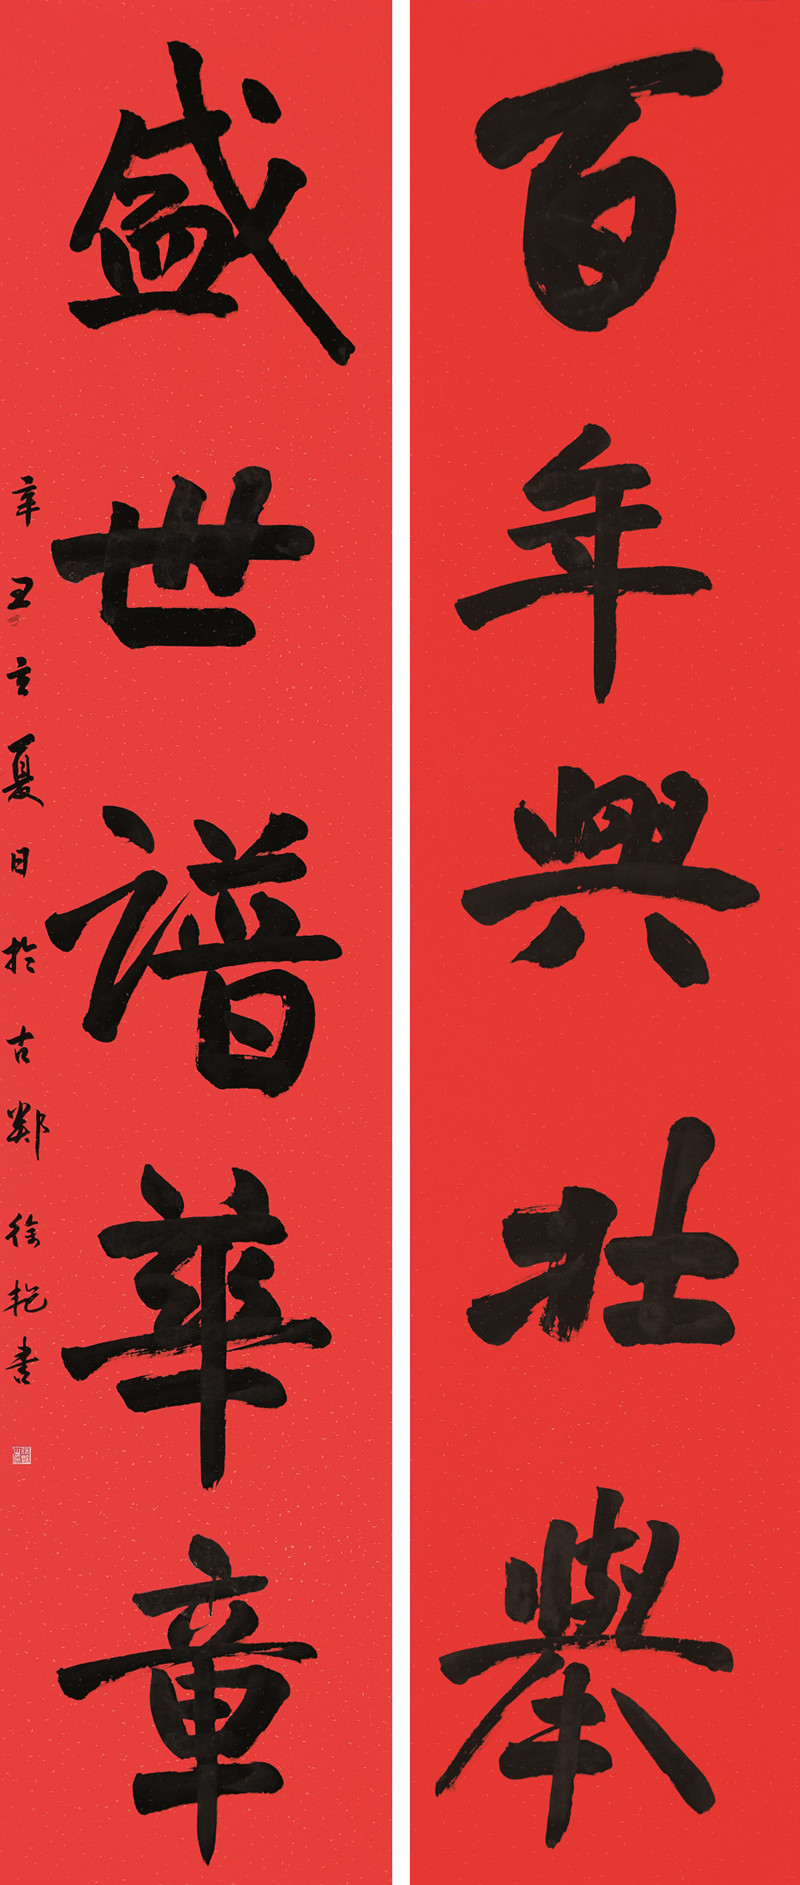 百年興壯舉
盛世譜華章
辛丑之夏日於古鄴徐艳書